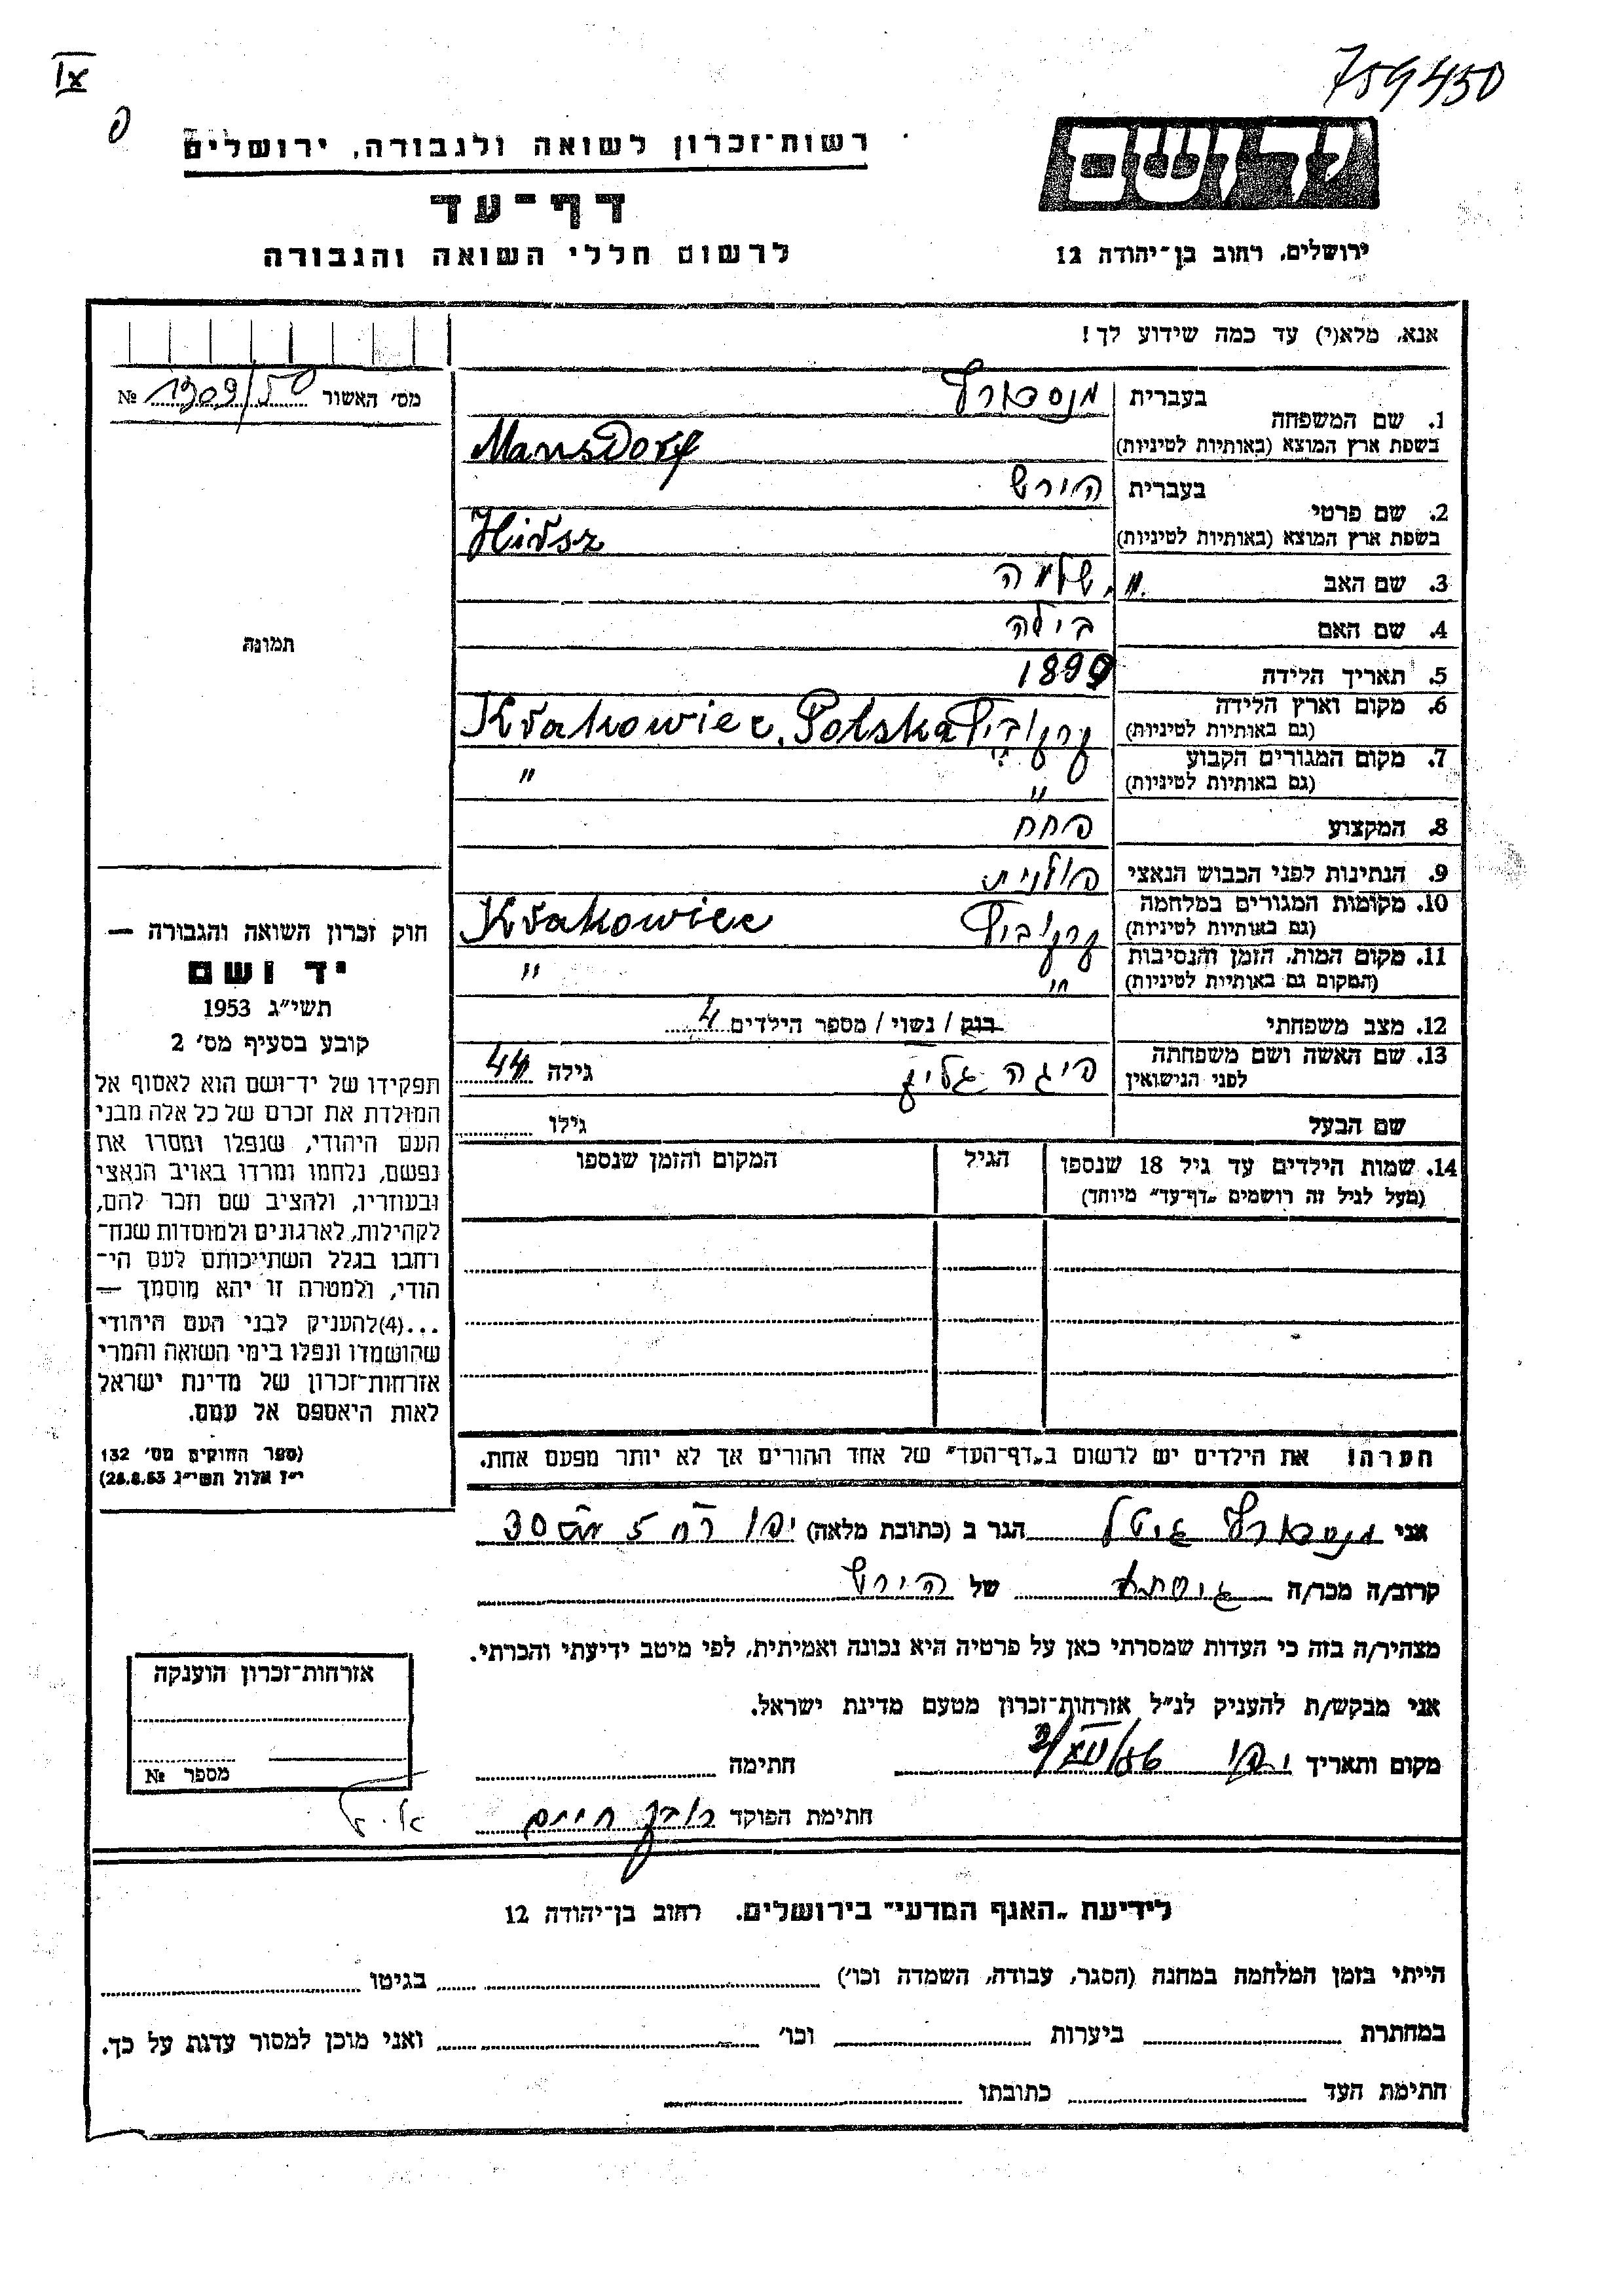 IX
759450
פ
רשות־זכרון לשואה ולגבורה, ירושלים
דף־עד
לרשום חללי השואה והגבורה
יד ושם
ירושלים, רחוב בן־יהודה 12
אנא, מלא(י) עד כמה שידוע לך!
מס׳ האשור 1309/50 №
1. שם המשפחה
בעברית מנסדורף
בשפת ארץ המוצא (באותיות לטיניות) Mansdorf
2. שם פרטי
בעברית הירש
בשפת ארץ המוצא (באותיות לטיניות) Hirsz
3. שם האב שלמה
4. שם האם בילה
5. תאריך הלידה 1899
6. מקום וארץ הלידה
(גם באותיות לטיניות) Krakowiec, Polska
7. מקום המגורים הקבוע
(גם באותיות לטיניות) " "
8. המקצוע פחח
9. הנתינות לפני הכבוש הנאצי פולנית
10. מקומות המגורים במלחמה
(גם באותיות לטיניות) Krakowiec
11. מקום המות, הזמן והנסיבות
(המקום גם באותיות לטיניות) " "
12. מצב משפחתי רווק / נשוי / מספר הילדים 4
13. שם האשה ושם משפחתה
לפני הנישואין פיגה גילה 44
שם הבעל גילו
14. שמות הילדים עד גיל 18 שנספו
(מעל לגיל זה רושמים „דף־עד״ מיוחד)
הגיל
המקום והזמן שנספו
הערה! את הילדים יש לרשום ב„דף־העד״ של אחד ההורים אך לא יותר מפעם אחת.
תמונה
חוק זכרון השואה והגבורה —
יד ושם
תשי״ג 1953
קובע בסעיף מס׳ 2
תפקידו של יד־ושם הוא לאסוף אל
המולדת את זכרם של כל אלה מבני
העם היהודי, שנפלו ומסרו את
נפשם, נלחמו ומרדו באויב הנאצי
ובעוזריו, ולהציב שם וזכר להם,
לקהילות, לארגונים ולמוסדות שנח־
רבו בגלל השתייכותם לעם הי־
הודי, ולמטרה זו יהא מוסמך —
...(4)להעניק לבני העם היהודי
שהושמדו ונפלו בימי השואה והמרי
אזרחות־זכרון של מדינת ישראל
לאות היאספם אל עמם.
(ספר החוקים מס׳ 132
י״ז אלול תשי״ג 28.8.53)
אני מנסדורף גיטל הגר ב (כתובת מלאה) יפו רח 5 מס 30
קרוב/ה מכר/ה גיסתו של הירש
מצהיר/ה בזה כי העדות שמסרתי כאן על פרטיה היא נכונה ואמיתית, לפי מיטב ידיעתי והכרתי.
אני מבקש/ת להעניק לנ״ל אזרחות־זכרון מטעם מדינת ישראל.
מקום ותאריך יפו 2/XII/56 חתימה
חתימת הפוקד רובין חיים
אזרחות־זכרון הוענקה
מספר №
לידיעת „האגף המדעי״ בירושלים, רחוב בן־יהודה 12
הייתי בזמן המלחמה במחנה (הסגר, עבודה, השמדה וכו׳) בגיטו
במחתרת ביערות וכו׳ ואני מוכן למסור עדות על כך.
חתימת העד כתובתו